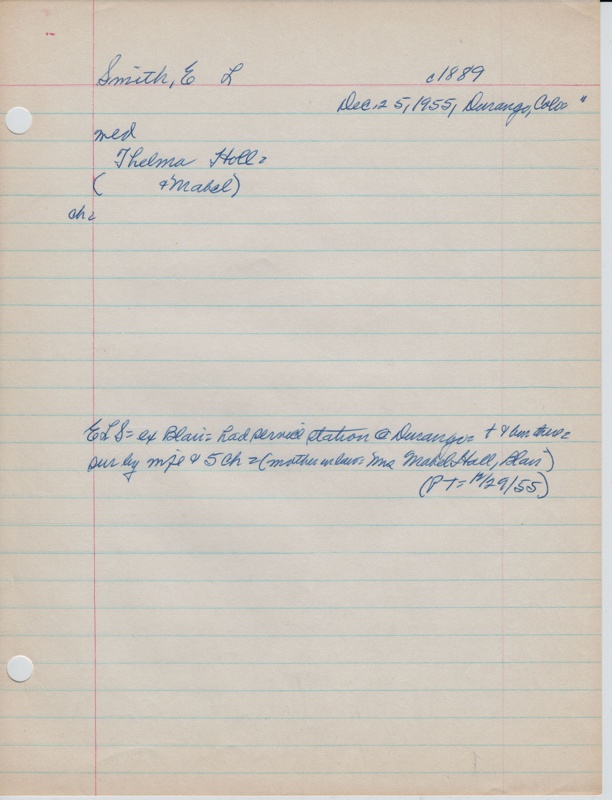 Smith, E L c1889
Dec. 25, 1955, Durango, Colo "
med
Thelma Holl =
( + Mabel)
ch =
ELS = ex Blair = had service station @ Durango = + & bur there =
sur by wife & 5 ch = (mother in law = Mrs Mabel Hall, Blair)
(PT = 12/29/55)